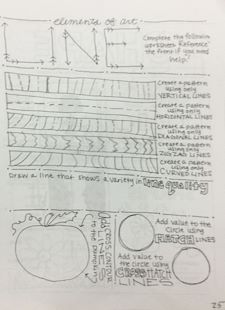 elements of art
LINE
Complete the following
worksheet. Reference
the front if you need
help!
Create a pattern
using only
VERTICAL LINES
Create a pattern
using only
HORIZONTAL LINES
Create a pattern
using only
DIAGONAL LINES
Create a pattern
using only
ZIGZAG LINES
Create a pattern
using only
CURVED LINES
Draw a line that shows a variety in line quality
Add CROSS CONTOUR
LINES
to the pumpkin
Add value to the
circle using
HATCH LINES
Add value to
the circle using
CROSSHATCH
LINES
25